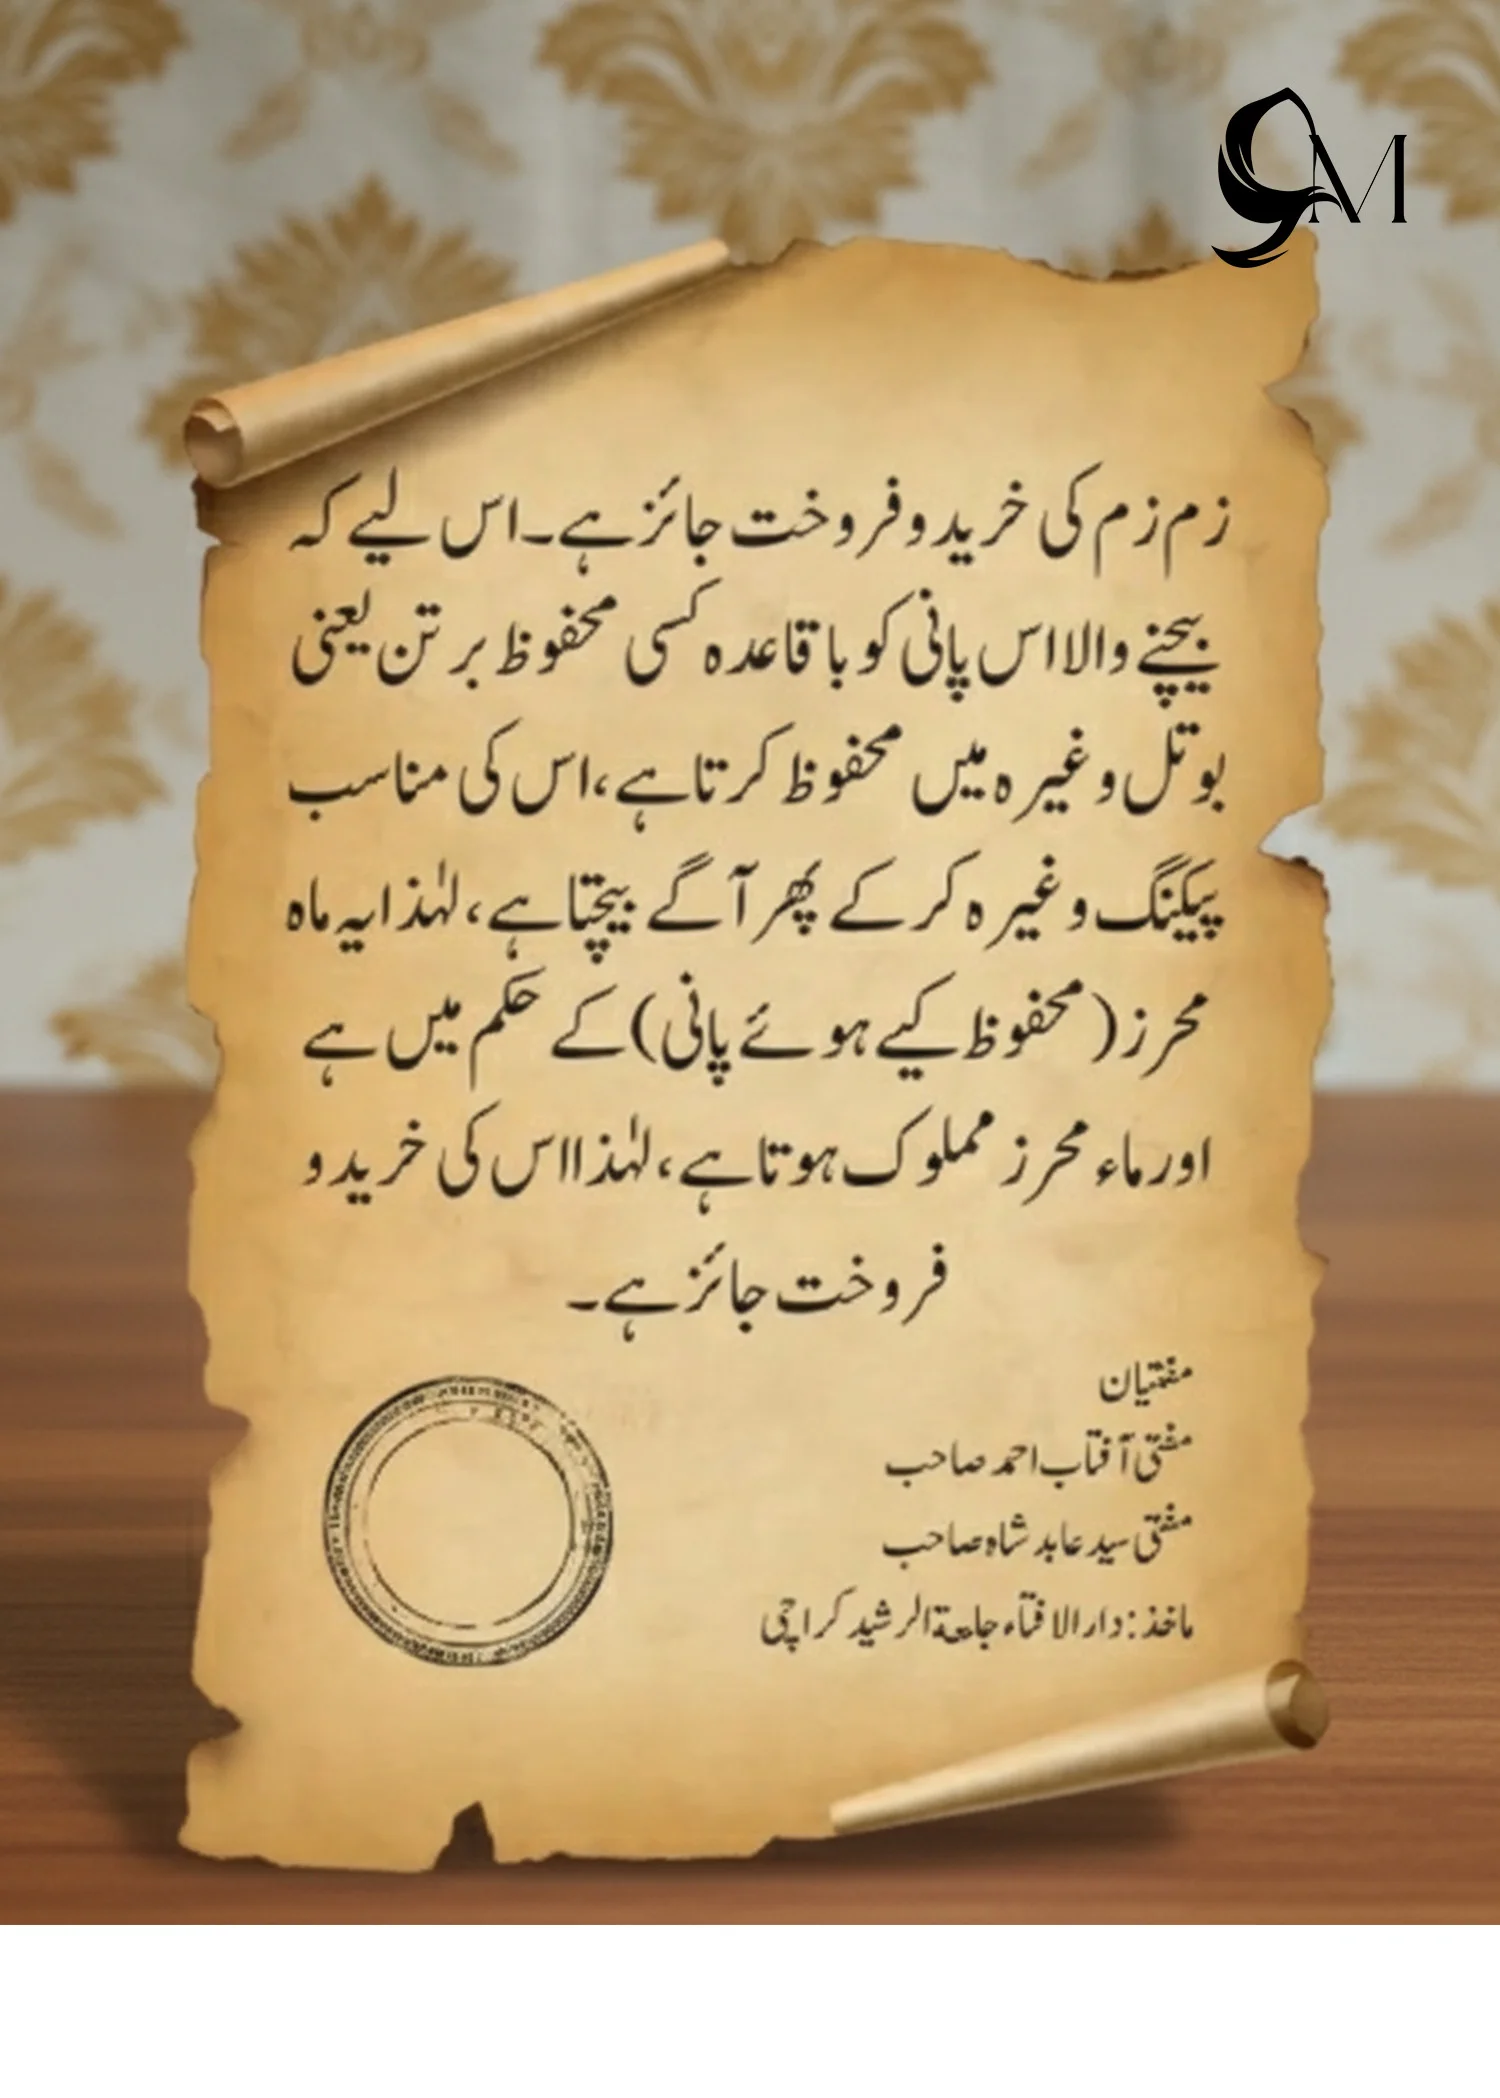 M
زم زم کی خرید و فروخت جائز ہے۔ اس لیے کہ
بیچنے والا اس پانی کو باقاعدہ کسی محفوظ برتن یعنی
بوتل وغیرہ میں محفوظ کرتا ہے، اس کی مناسب
پیکنگ وغیرہ کر کے پھر آگے بیچتا ہے، لہٰذا یہ ماہ
محرز (محفوظ کیے ہوئے پانی) کے حکم میں ہے
اور ماء محرز مملوک ہوتا ہے، لہٰذا اس کی خرید و
فروخت جائز ہے۔
مفتیان
مفتی آفتاب احمد صاحب
مفتی سید عابد شاہ صاحب
ماخذ: دار الافتاء جامعۃ الرشید کراچی